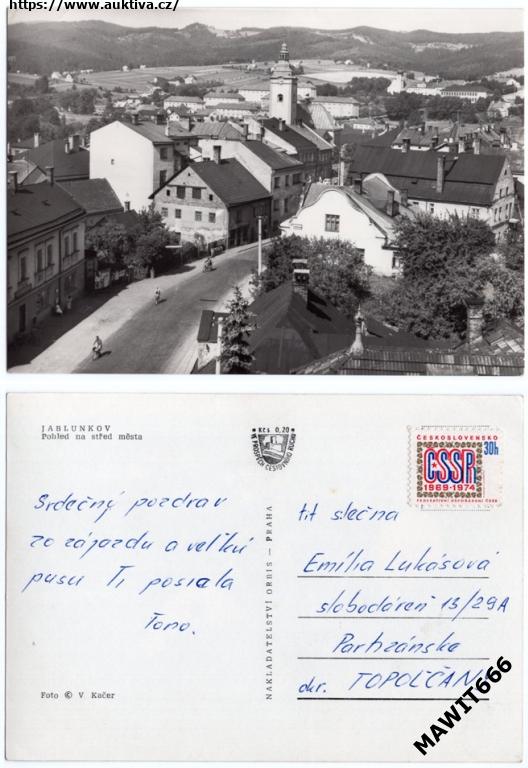 https://www.auktiva.cz/
JABLUNKOV
Pohled na střed města
Kčs 0,20
VE PROSPĚCH CESTOVNÍHO RUCHU
ČESKOSLOVENSKO
30h
ČSSR
1969-1974
FEDERATIVNÍ USPOŘÁDÁNÍ ČSSR
Srdečný pozdrav
zo zájazdu a veľkú
pusu Ti posiela
Tono.
NAKLADATELSTVÍ ORBIS — PRAHA
tit slečna
Emília Lukásová
slobodáreň 13/29A
Partizánske
okr. TOPOĽČANY
Foto © V Kačer
MAWIT666